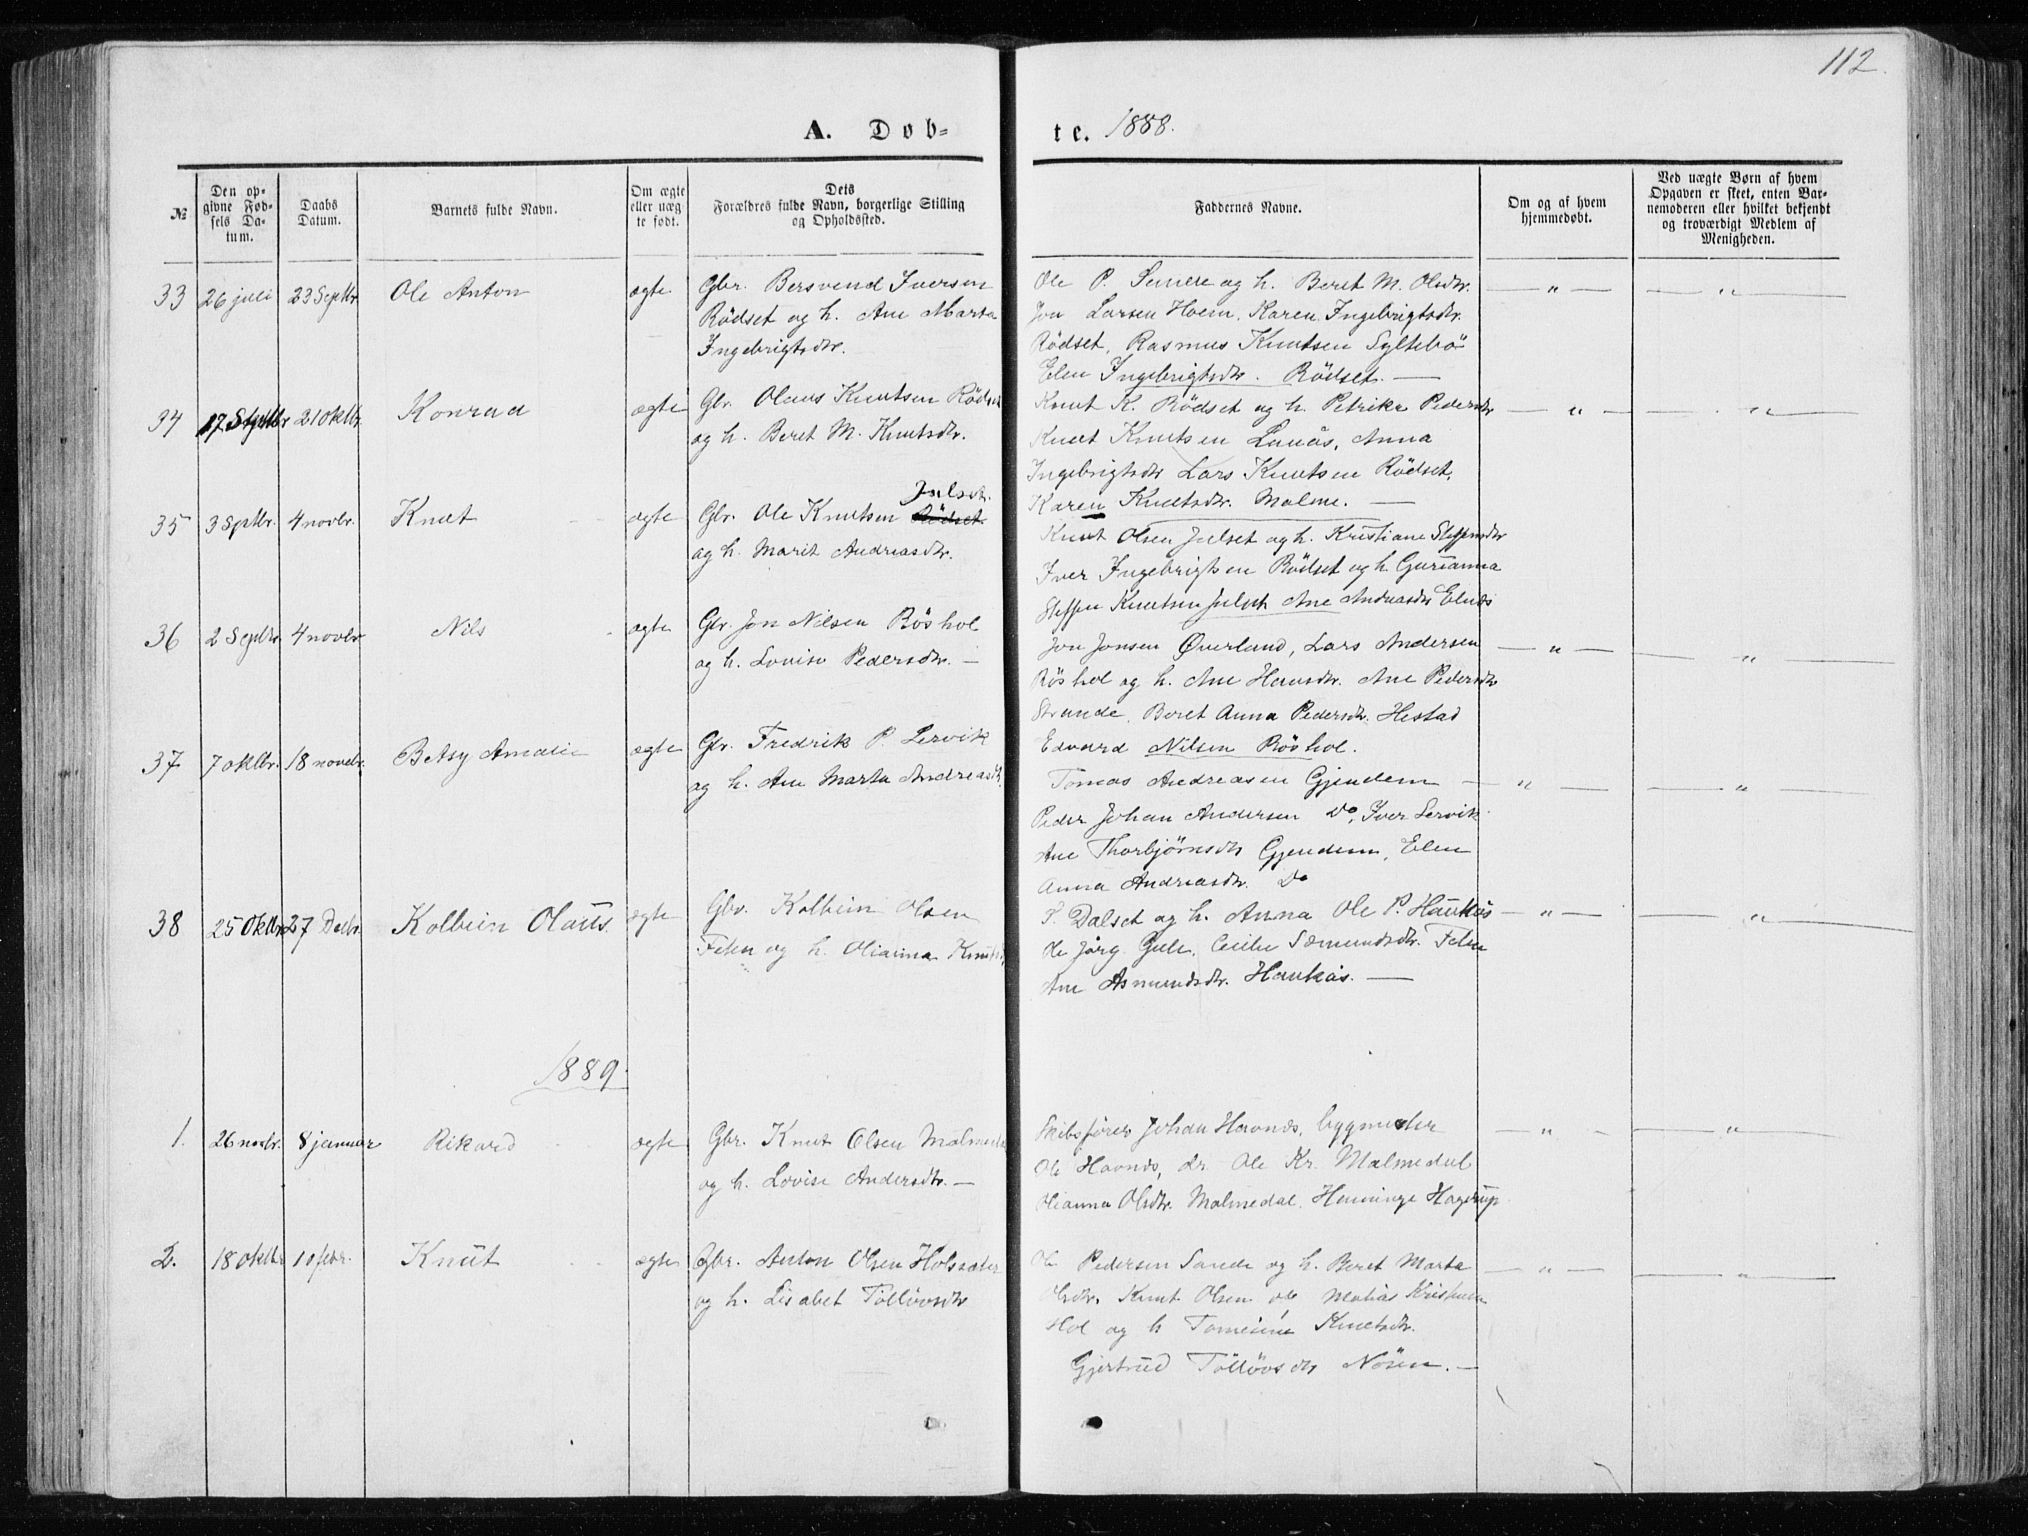 112.
A. Døb-
te. 1888.
№
Den op-
givne Fød-
sels Da-
tum.
Daabs
Datum.
Barnets fulde Navn.
Om ægte
eller uæg-
te født.
Dets
Forældres fulde Navn, borgerlige Stilling
og Opholdssted.
Faddernes Navne.
Om og af hvem
hjemmedøbt.
Ved uægte Børn af hvem
Opgaven er skeet, enten Bar-
nemoderen eller hvilket bekjendt
og troværdigt Medlem af
Menigheden.
33 26 juli 23 Septbr. Ole Anton ægte Gbr. Bersvend Iversen
Rödset og h. Ane Marta
Ingebrigtsdtr.
Ole P. og h. Beret M. Olsdtr. — " — — " —
Jon Larsen Hoem, Karen Ingebrigtsdtr.
Rödset, Rasmus Knutsen Syltebö
Elen Ingebrigtsdtr. Rödset. —
34 17 Septbr 21 Oktbr. Konrad ægte Gbr. Olaus Knutsen Rödset
og h. Beret M. Knutsdtr.
Knut K. Rödset og h. Petrike Pedersdtr — " — — " —
Knut Knutsen Lunås, Anna
Ingebrigtsdtr Lars Knutsen Rödset,
Karen Knutsdtr. Malme. —
35 3 Septbr. 4 novbr. Knut ægte Gbr. Ole Knutsen Rödset Julset.
og h. Marit Andreasdtr.
Knut Olsen Julset og h. Kristiane Steffensdtr
Iver Ingebrigtsen Rödset og h. Gurianna
Steffen Knutsen Julset Ane Andreasdtr Elnæs
36 2 Septbr. 4 novbr Nils ægte Gbr. Jon Nilsen Röshol
og h. Lovise Pedersdtr. —
Jon Jonsen Øverland, Lars Andersen — " — — " —
Röshol og h. Ane Hansdtr. Ane Pedersdtr
Strande, Beret Anna Pedersdtr. Hestad
Edvard Nilsen Röshol.
37 7 oktbr. 18 novbr. Betsy Amalie ægte Gbr. Fredrik P. Lervik
og h. Ane Marta Andreasdtr.
Tomas Andreasen Gjendem — " — — " —
Peder Johan Andersen Do, Iver Lervik
Ane Thorbjørnsdtr Gjendem, Elen
Anna Andreasdtr. Do
38 25 Oktbr. 27 Decbr. Kolbein Olaus. ægte Gbr. Kolbein Olsen
Felen og h. Olianna Knutsd.
P. Dalset og h. Anna Ole P. Haukås — " — — " —
Ole Jörg. Gule, Cecilie Sæmundsdtr. Felen
Ane Asmundsdtr. Haukås. —
1889.
1. 26 novbr. 8 januar Rikard ægte Gbr. Knut Olsen Malmedal
og h. Lovise Andersdtr. —
Skibsfører Johan Havnås, bygmester — " — — " —
Ole Havnås, dr. Ole Kr. Malmedal
Olianna Olsdtr. Malmedal, Henninge Hagerup
2. 18 oktbr 10 febr. Knut ægte Gbr. Anton Olsen Holsæter
og h. Lisabet Tollövsdtr
Ole Pedersen Sande og h. Beret Marta — " — — " —
Olsdtr. Knut Olsen og Matias Kristensen
Hol og h Tomesine Knutsdtr.
Gjertrud Tollövsdtr Nösen. —